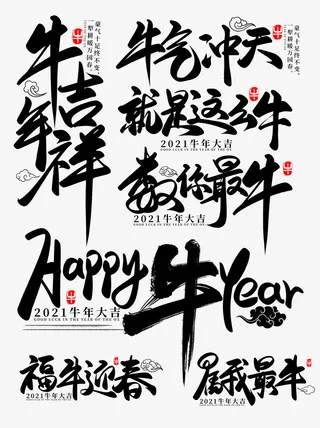 牛年
吉祥
豪气十足不变，
一犁耕暖万回春。
牛气冲天
豪气十足不变，
一犁耕暖万回春。
就是这么牛
2021牛年大吉
GOOD LUCK IN THE YEAR OF THE OX
数你最牛
2021牛年大吉
GOOD LUCK IN THE YEAR OF THE OX
Happy 牛 Year
2021牛年大吉
GOOD LUCK IN THE YEAR OF THE OX
福牛迎春
属我最牛